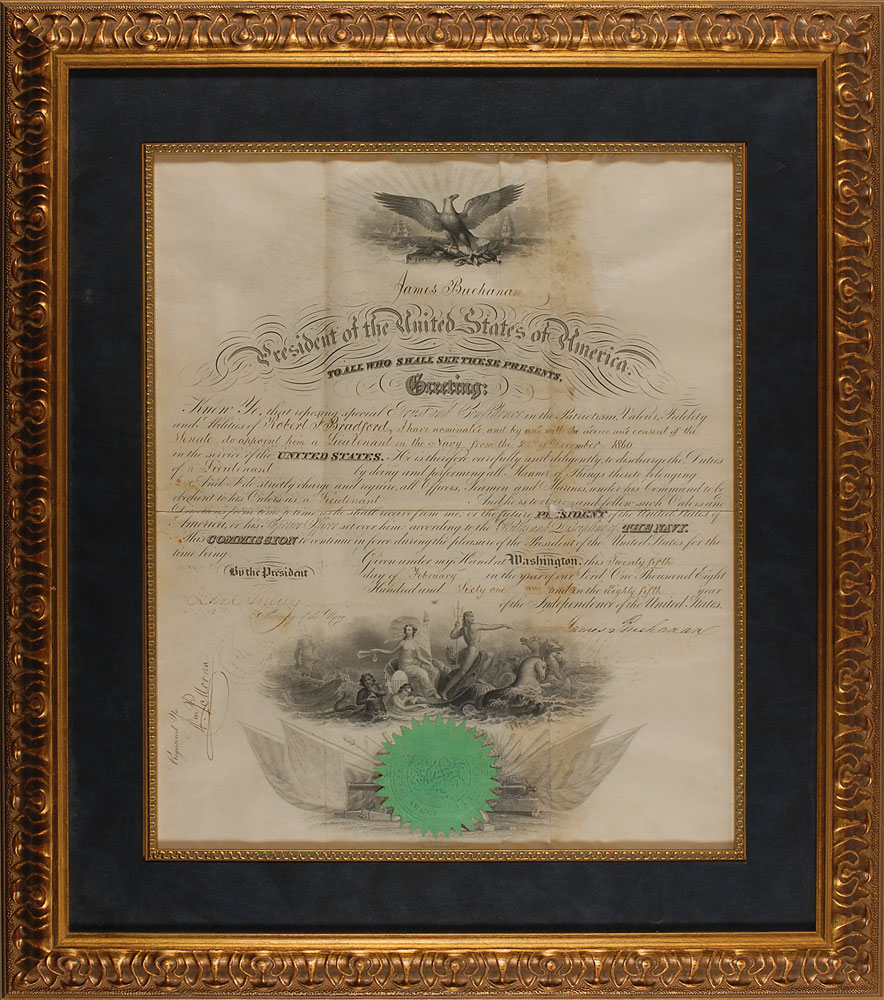 James Buchanan
President of the United States of America.
TO ALL WHO SHALL SEE THESE PRESENTS,
Greeting:
Know Ye, that reposing special Trust and Confidence in the Patriotism, Valour, Fidelity
and Abilities of Robert F. Bradford, I have nominated and by and with the advice and consent of the
Senate do appoint him a Lieutenant in the Navy, from the of December 1860
in the service of the UNITED STATES. He is therefore carefully and diligently to discharge the Duties
of a Lieutenant by doing and performing all Manner of Things thereto belonging.
And I do strictly charge and require, all Officers, Seamen and Marines, under his Command to be
obedient to his Orders as a Lieutenant And he is to observe and follow such Orders and
Directions from time to time as he shall receive from me, or the future PRESIDENT of the United States of
America, or his Superior Officer set over him, according to the of THE NAVY.
This COMMISSION to continue in force during the pleasure of the President of the United States for the
time being.
Given under my Hand at Washington, this Twenty fifth
By the President
day of February in the year of our Lord One Thousand Eight
Hundred and Sixty one and in the Eighty fifth year
of the Independence of the United States.
Secretary of the Navy
James Buchanan
Registered No.